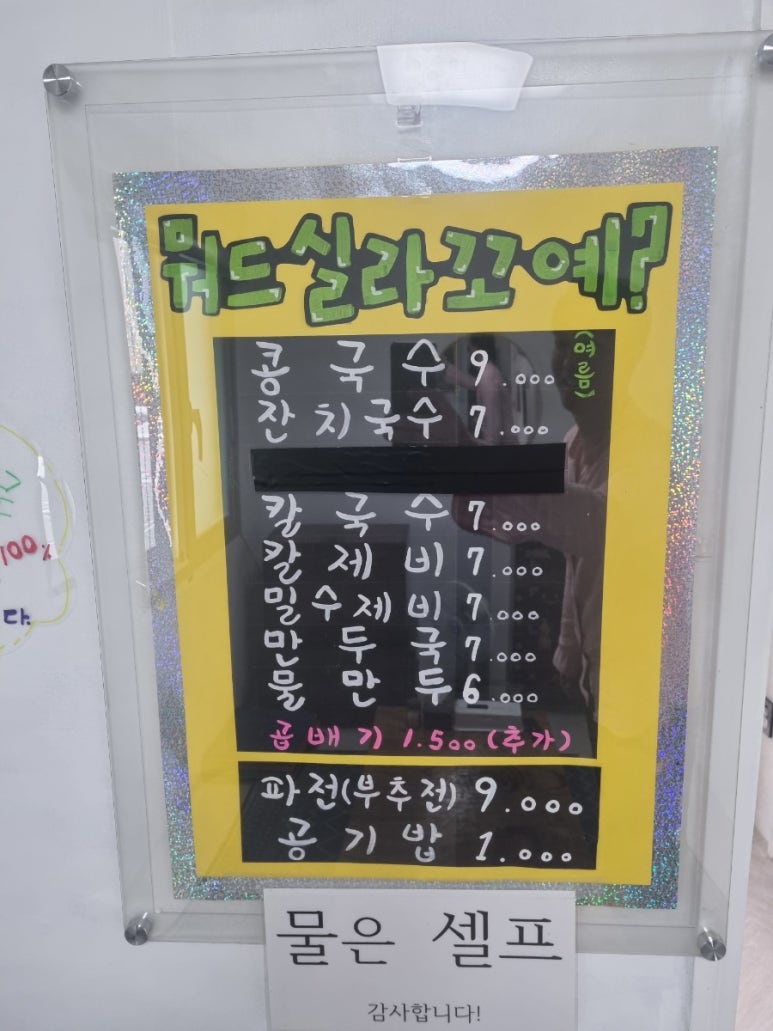 뭐드실라꼬예?
콩국수 9.000 (여름)
잔치국수 7.000
칼국수 7.000
칼제비 7.000
밀수제비 7.000
만두국 7.000
물만두 6.000
곱배기 1.500 (추가)
파전(부추전) 9.000
공기밥 1.000
물은 셀프
감사합니다!
100%
다.